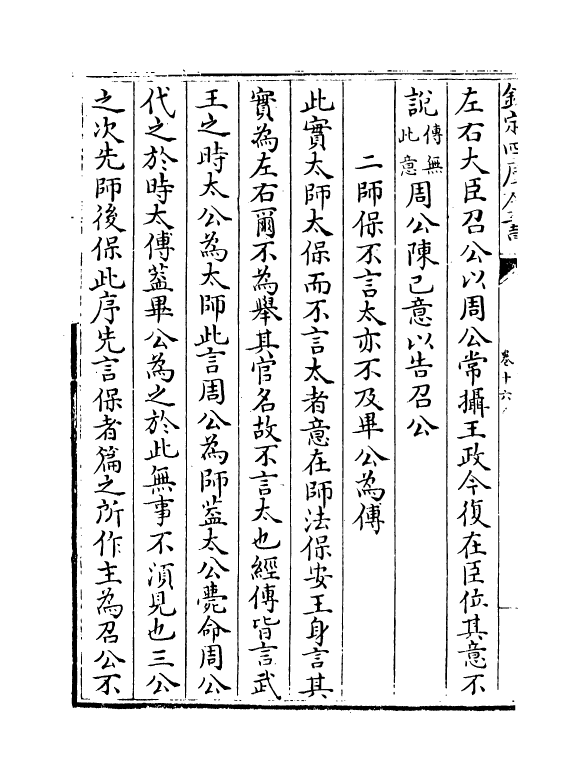 欽定四庫全書
卷十六
左右大臣召公以周公常攝王政今復在臣位其意不
說傳無此意周公陳己意以告召公
二師保不言太亦不及畢公為傅
此實太師太保而不言太者意在師法保安王身言其
實為左右爾不為舉其官名故不言太也經傳皆言武
王之時太公為太師此言周公為師葢太公薨命周公
代之於時太傅葢畢公為之於此無事不須見也三公
之次先師後保此序先言保者篇之所作主為召公不